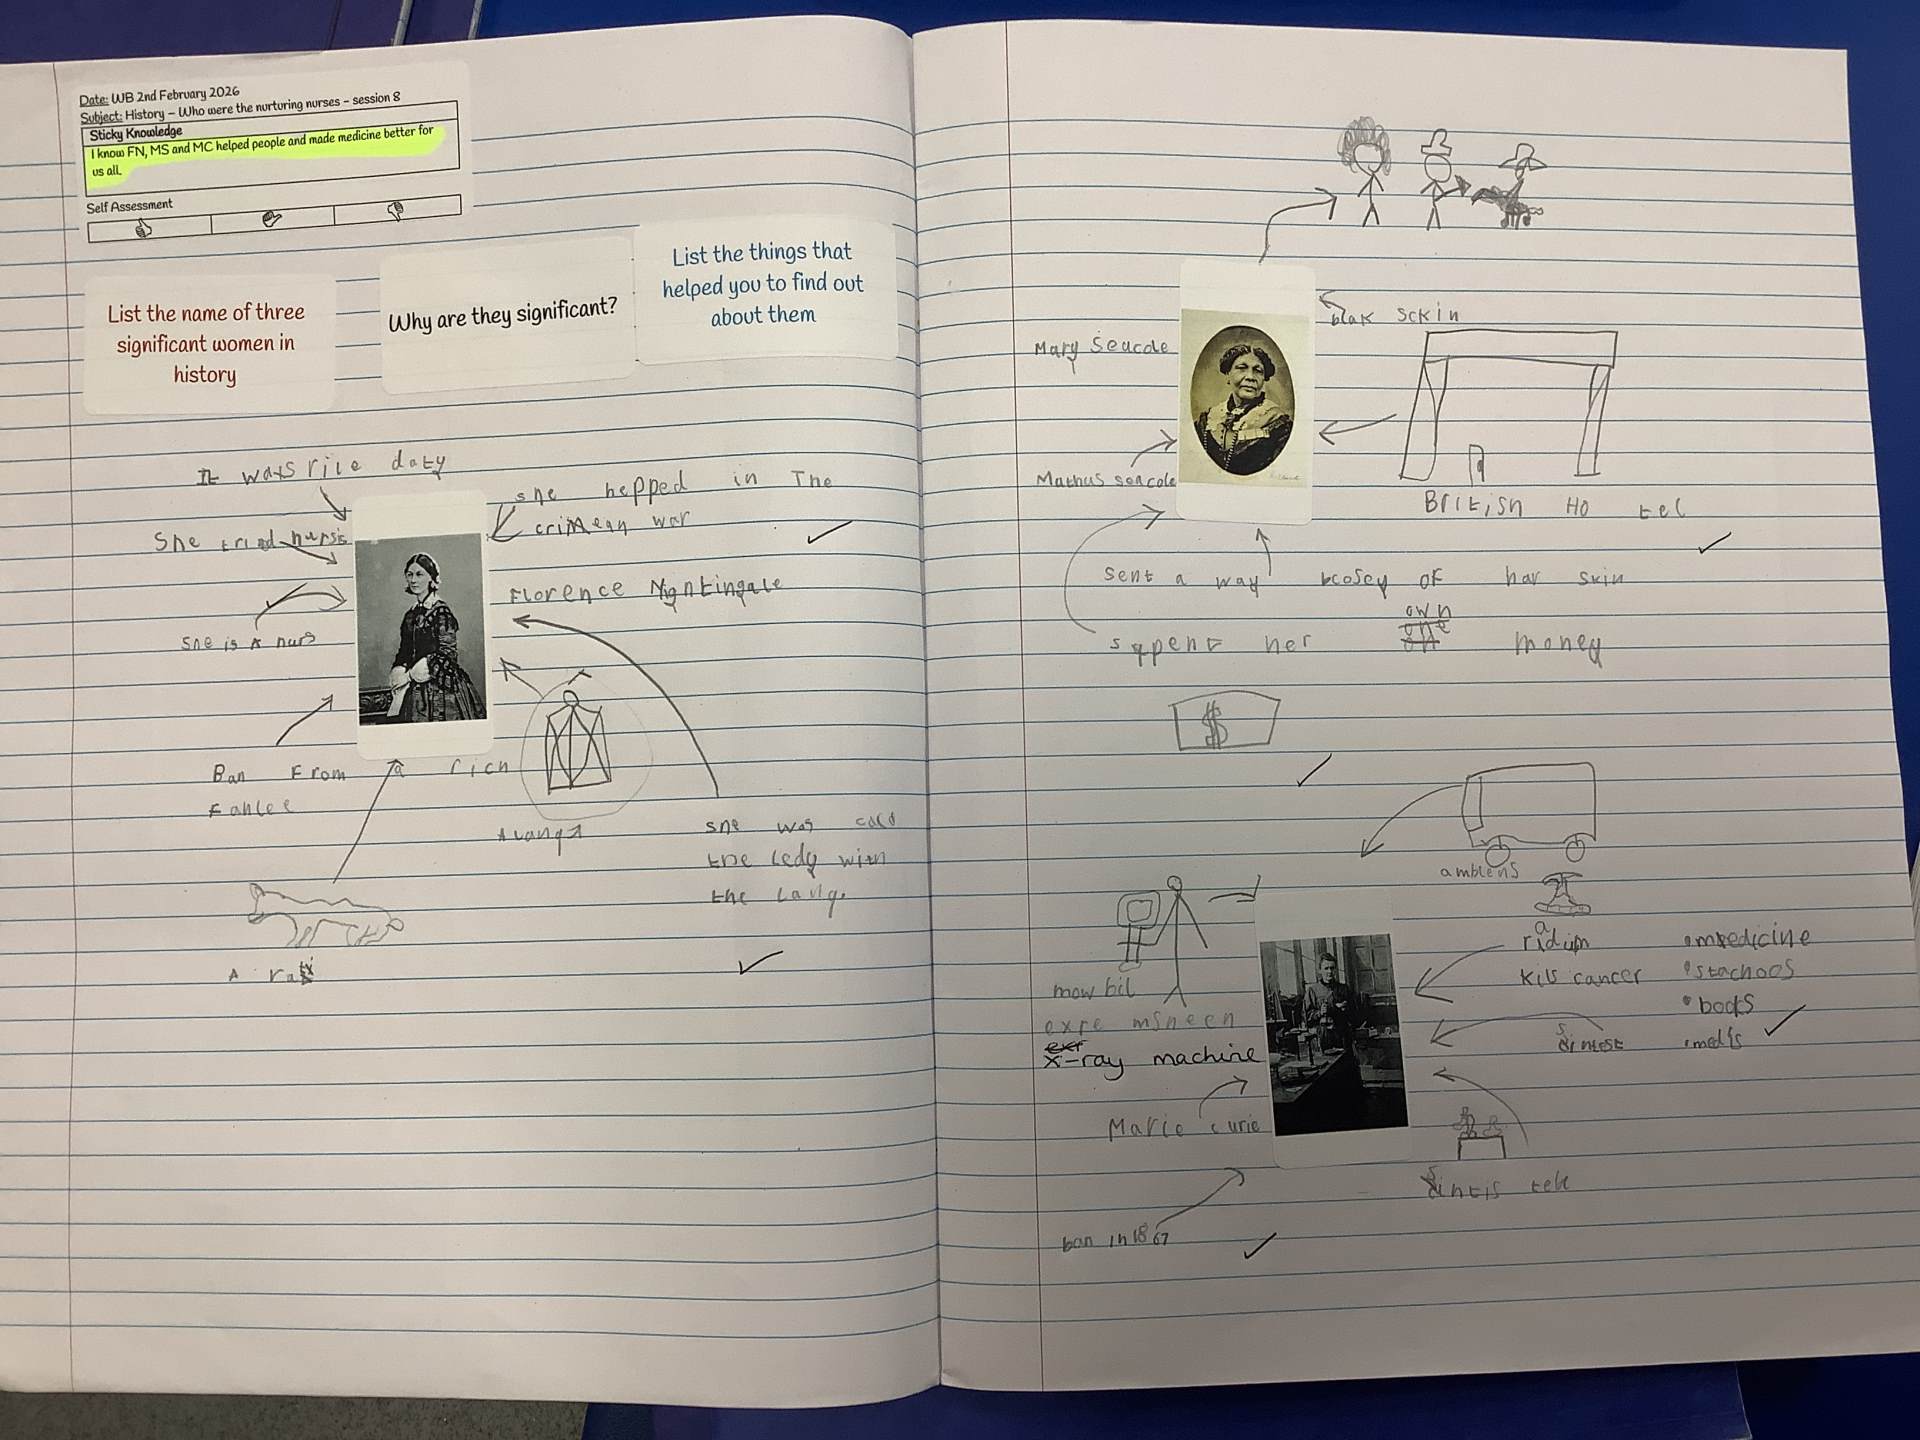 Date: WB 2nd February 2026
Subject: History – Who were the nurturing nurses – session 8
Sticky Knowledge
I know FN, MS and MC helped people and made medicine better for
us all.
Self Assessment
List the name of three
significant women in
history
Why are they significant?
List the things that
helped you to find out
about them
It ways rile daty
She tried nursis
she is A nurs
she hepped in The
crimean war
Florence Nightingale
Ban From a rich
Fanlee
A lang
she was cald
the ledy with
the lang.
A rat
blak sckin
Mary Seacole
Mathus seacole
British Ho tel
sent a way bcosey of har skin
own
sppent her money
$
amblens
mow bil
expe msheen
x-ray machine
Marie curie
ban in 1867
radium
kils cancer
sintest
•medicine
•stachoos
•books
•medls
sintis tell